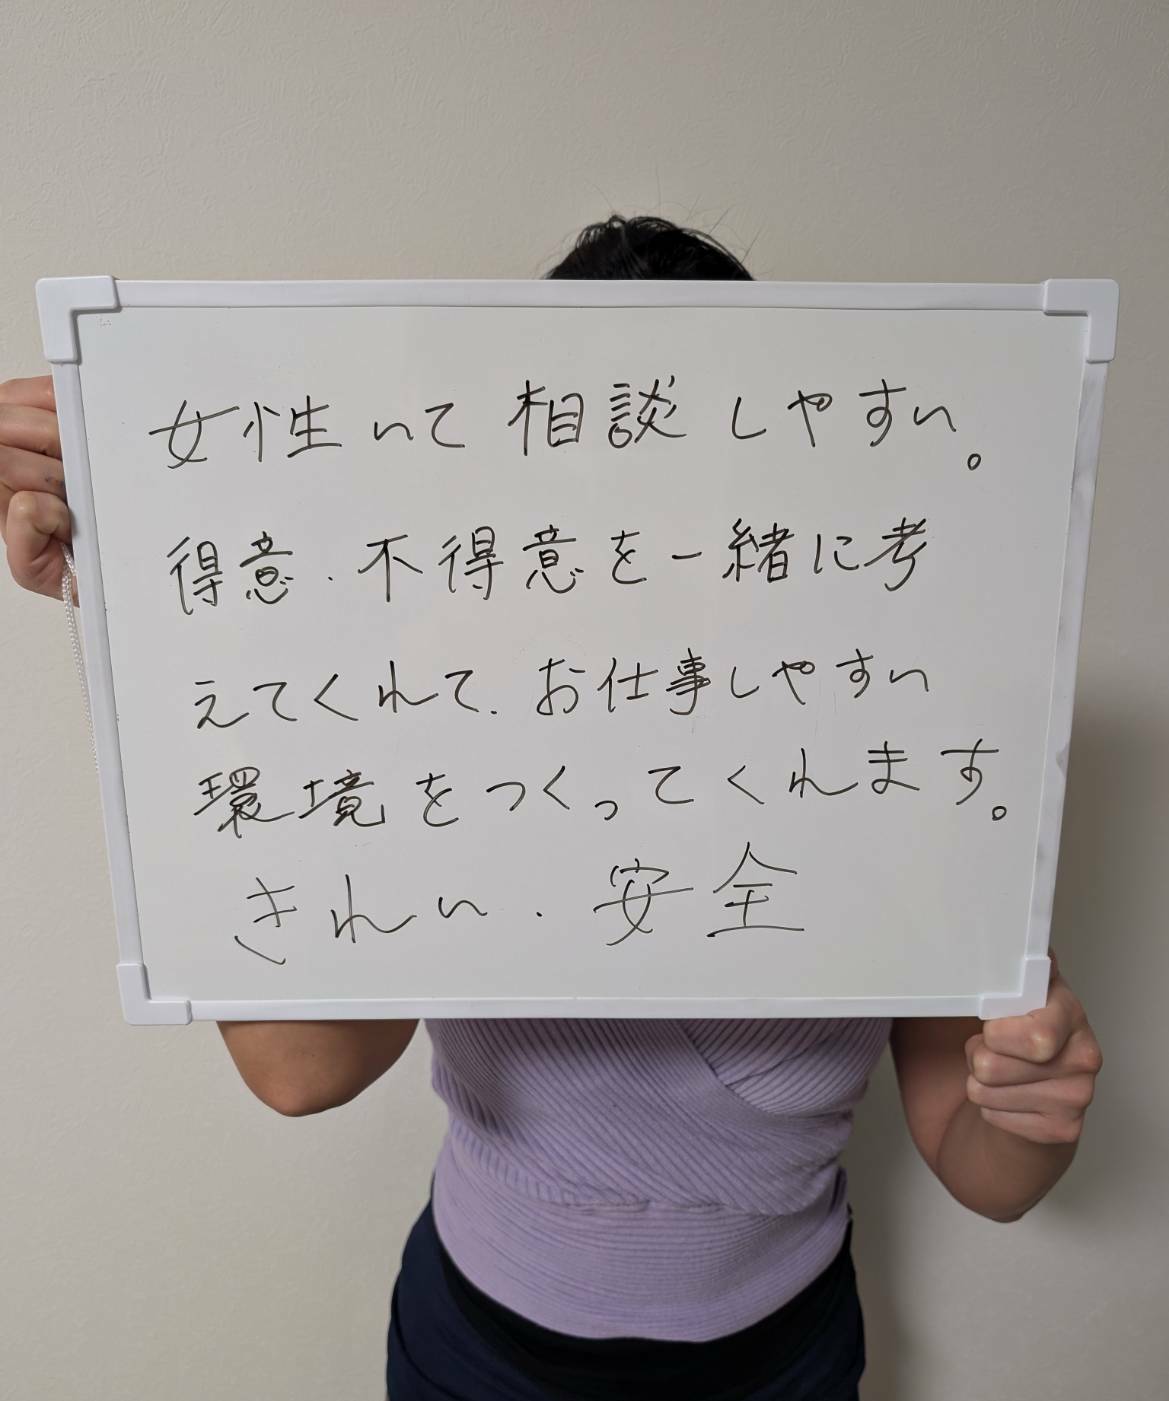 女性いて相談しやすい。
得意・不得意を一緒に考
えてくれて、お仕事しやすい
環境をつくってくれます。
きれい・安全